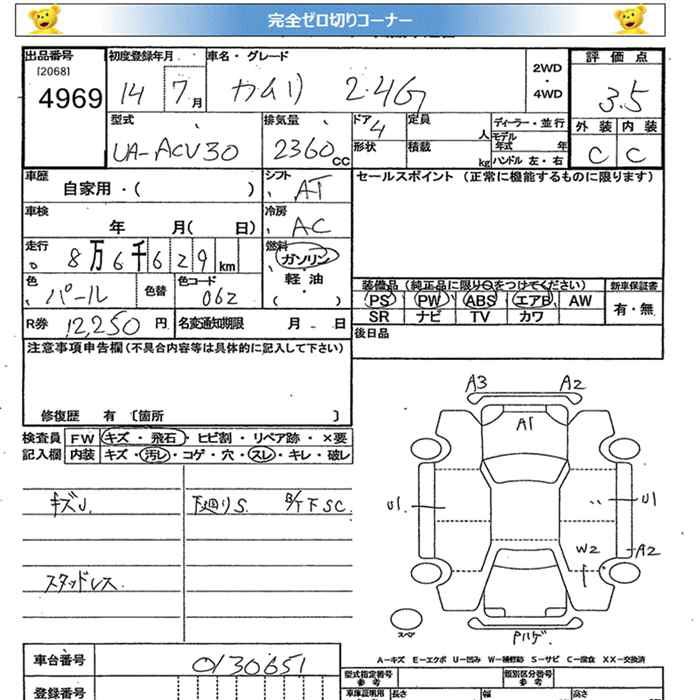 完全ゼロ切りコーナー
出品番号 初度登録年月 車名・グレード 評価点
[2068]
4969 14 7月 カムリ 2.4G 2WD・4WD 3.5
型式 排気量 ドア 定員 人 ディーラー・並行 外装 内装
UA-ACV30 2360cc 4 形状 積載 kg モデル年式 年 ハンドル 左・右 C C
車歴 自家用・( ) シフト AT セールスポイント (正常に機能するものに限ります)
車検 年 月( 日) 冷房 AC
走行 8万6千629km 燃料 ガソリン・軽油・( )
色 パール 色替 色コード 062 装備品 (純正品に限り○をつけてください) 新車保証書
PS PW ABS エアB AW 有・無
SR ナビ TV カワ
R券 12,250円 名変通知期限 月 日 後日品
注意事項申告欄(不具合内容等は具体的に記入して下さい)
修復歴 有 [箇所 ]
検査員 FW キズ・飛石・ヒビ割・リペア跡・×要
記入欄 内装 キズ・汚レ・コゲ・穴・スレ・キレ・破レ
キズU. 下廻りS. B/F下SC.
スタッドレス
A3 A2
A1
U1 U1
W2 A2
スペア
Pハゲ
A−キズ E−エクボ U−凹み W−補修跡 S−サビ C−腐食 XX−交換済
車台番号 0130651 型式指定番号 参考 類別区分番号 参考
登録番号 車庫証明用 参考 長さ 幅 高さ